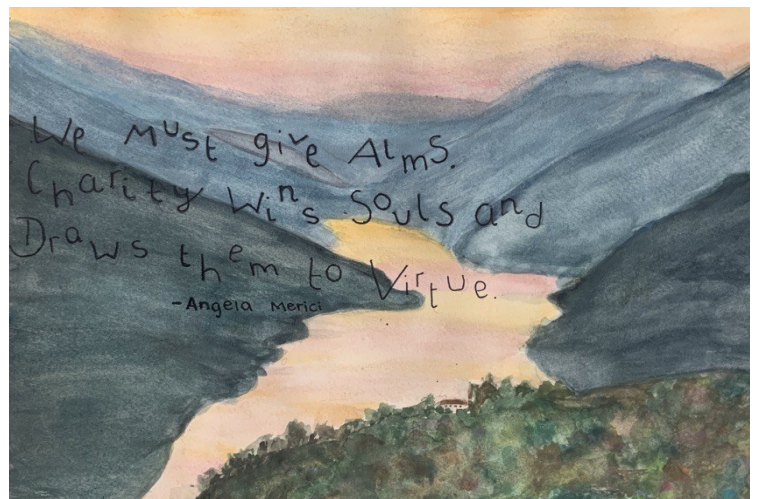 We Must give Alms.
Charity Wins Souls and
Draws them to Virtue.
-Angela Merici